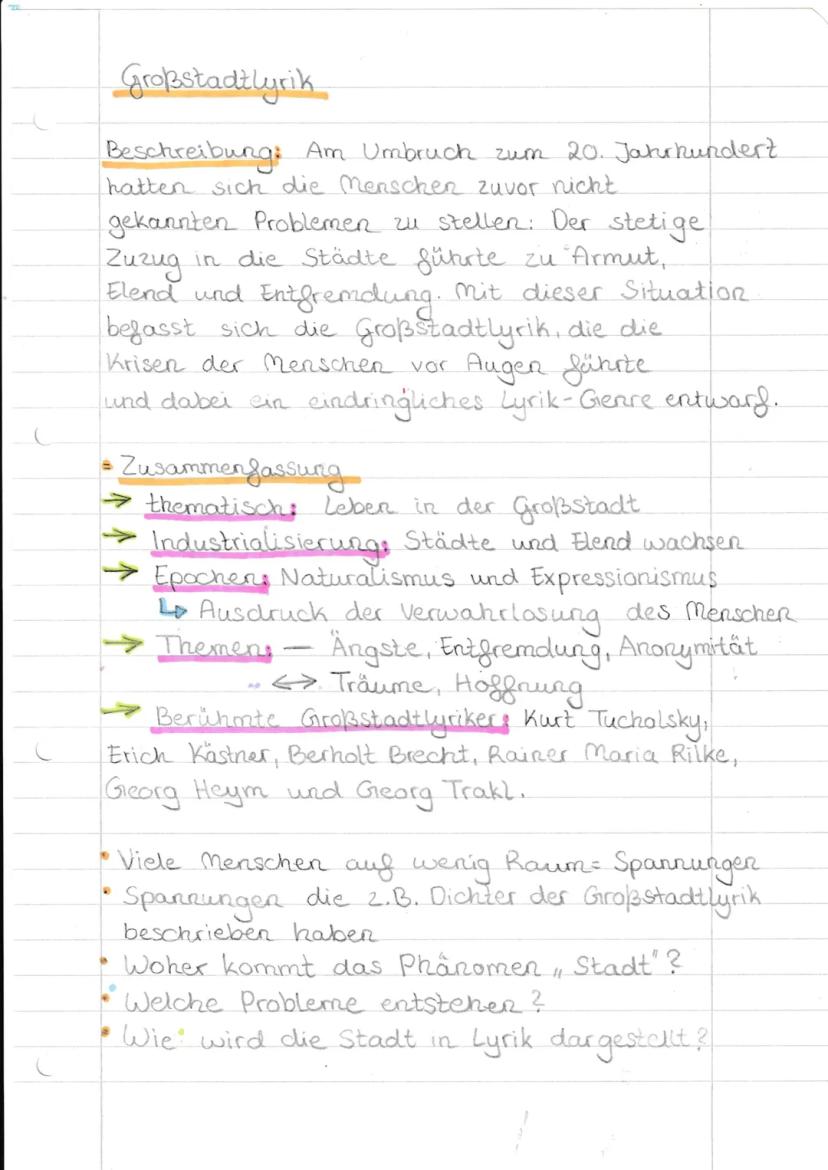 Großstadtlyrik
Beschreibung: Am Umbruch zum 20. Jahrhundert
hatten sich die Menschen zuvor nicht
gekannten Problemen zu stellen: Der stetige
Zuzug in die Städte führte zu Armut,
Elend und Entfremdung. Mit dieser Situation
befasst sich die Großstadtlyrik, die die
Krisen der Menschen vor Augen führte
und dabei ein eindringliches Lyrik-Genre entwarf.
Zusammenfassung
→ thematisch: Leben in der Großstadt
→ Industrialisierung: Städte und Elend wachsen
→ Epochen: Naturalismus und Expressionismus
↳ Ausdruck der Verwahrlosung des Menschen
→ Themen: — Ängste, Entfremdung, Anonymität
↔ Träume, Hoffnung
→ Berühmte Großstadtlyriker: Kurt Tucholsky,
Erich Kästner, Berholt Brecht, Rainer Maria Rilke,
Georg Heym und Georg Trakl.
• Viele Menschen auf wenig Raum = Spannungen
• Spannungen die z.B. Dichter der Großstadtlyrik
beschrieben haben
• Woher kommt das Phänomen „Stadt"?
• Welche Probleme entstehen?
• Wie wird die Stadt in Lyrik dargestellt?